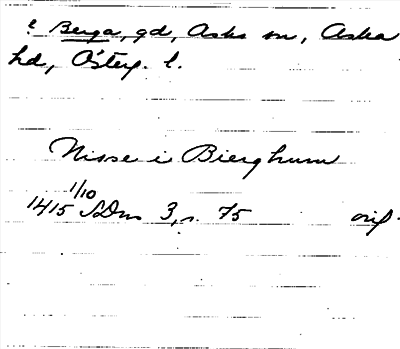 ? Berga, gd, Aska sn, Aska
hd, Österg. l.
Nisse i Bierghum
1/10
1415 SDns 3, s. 75 orig.